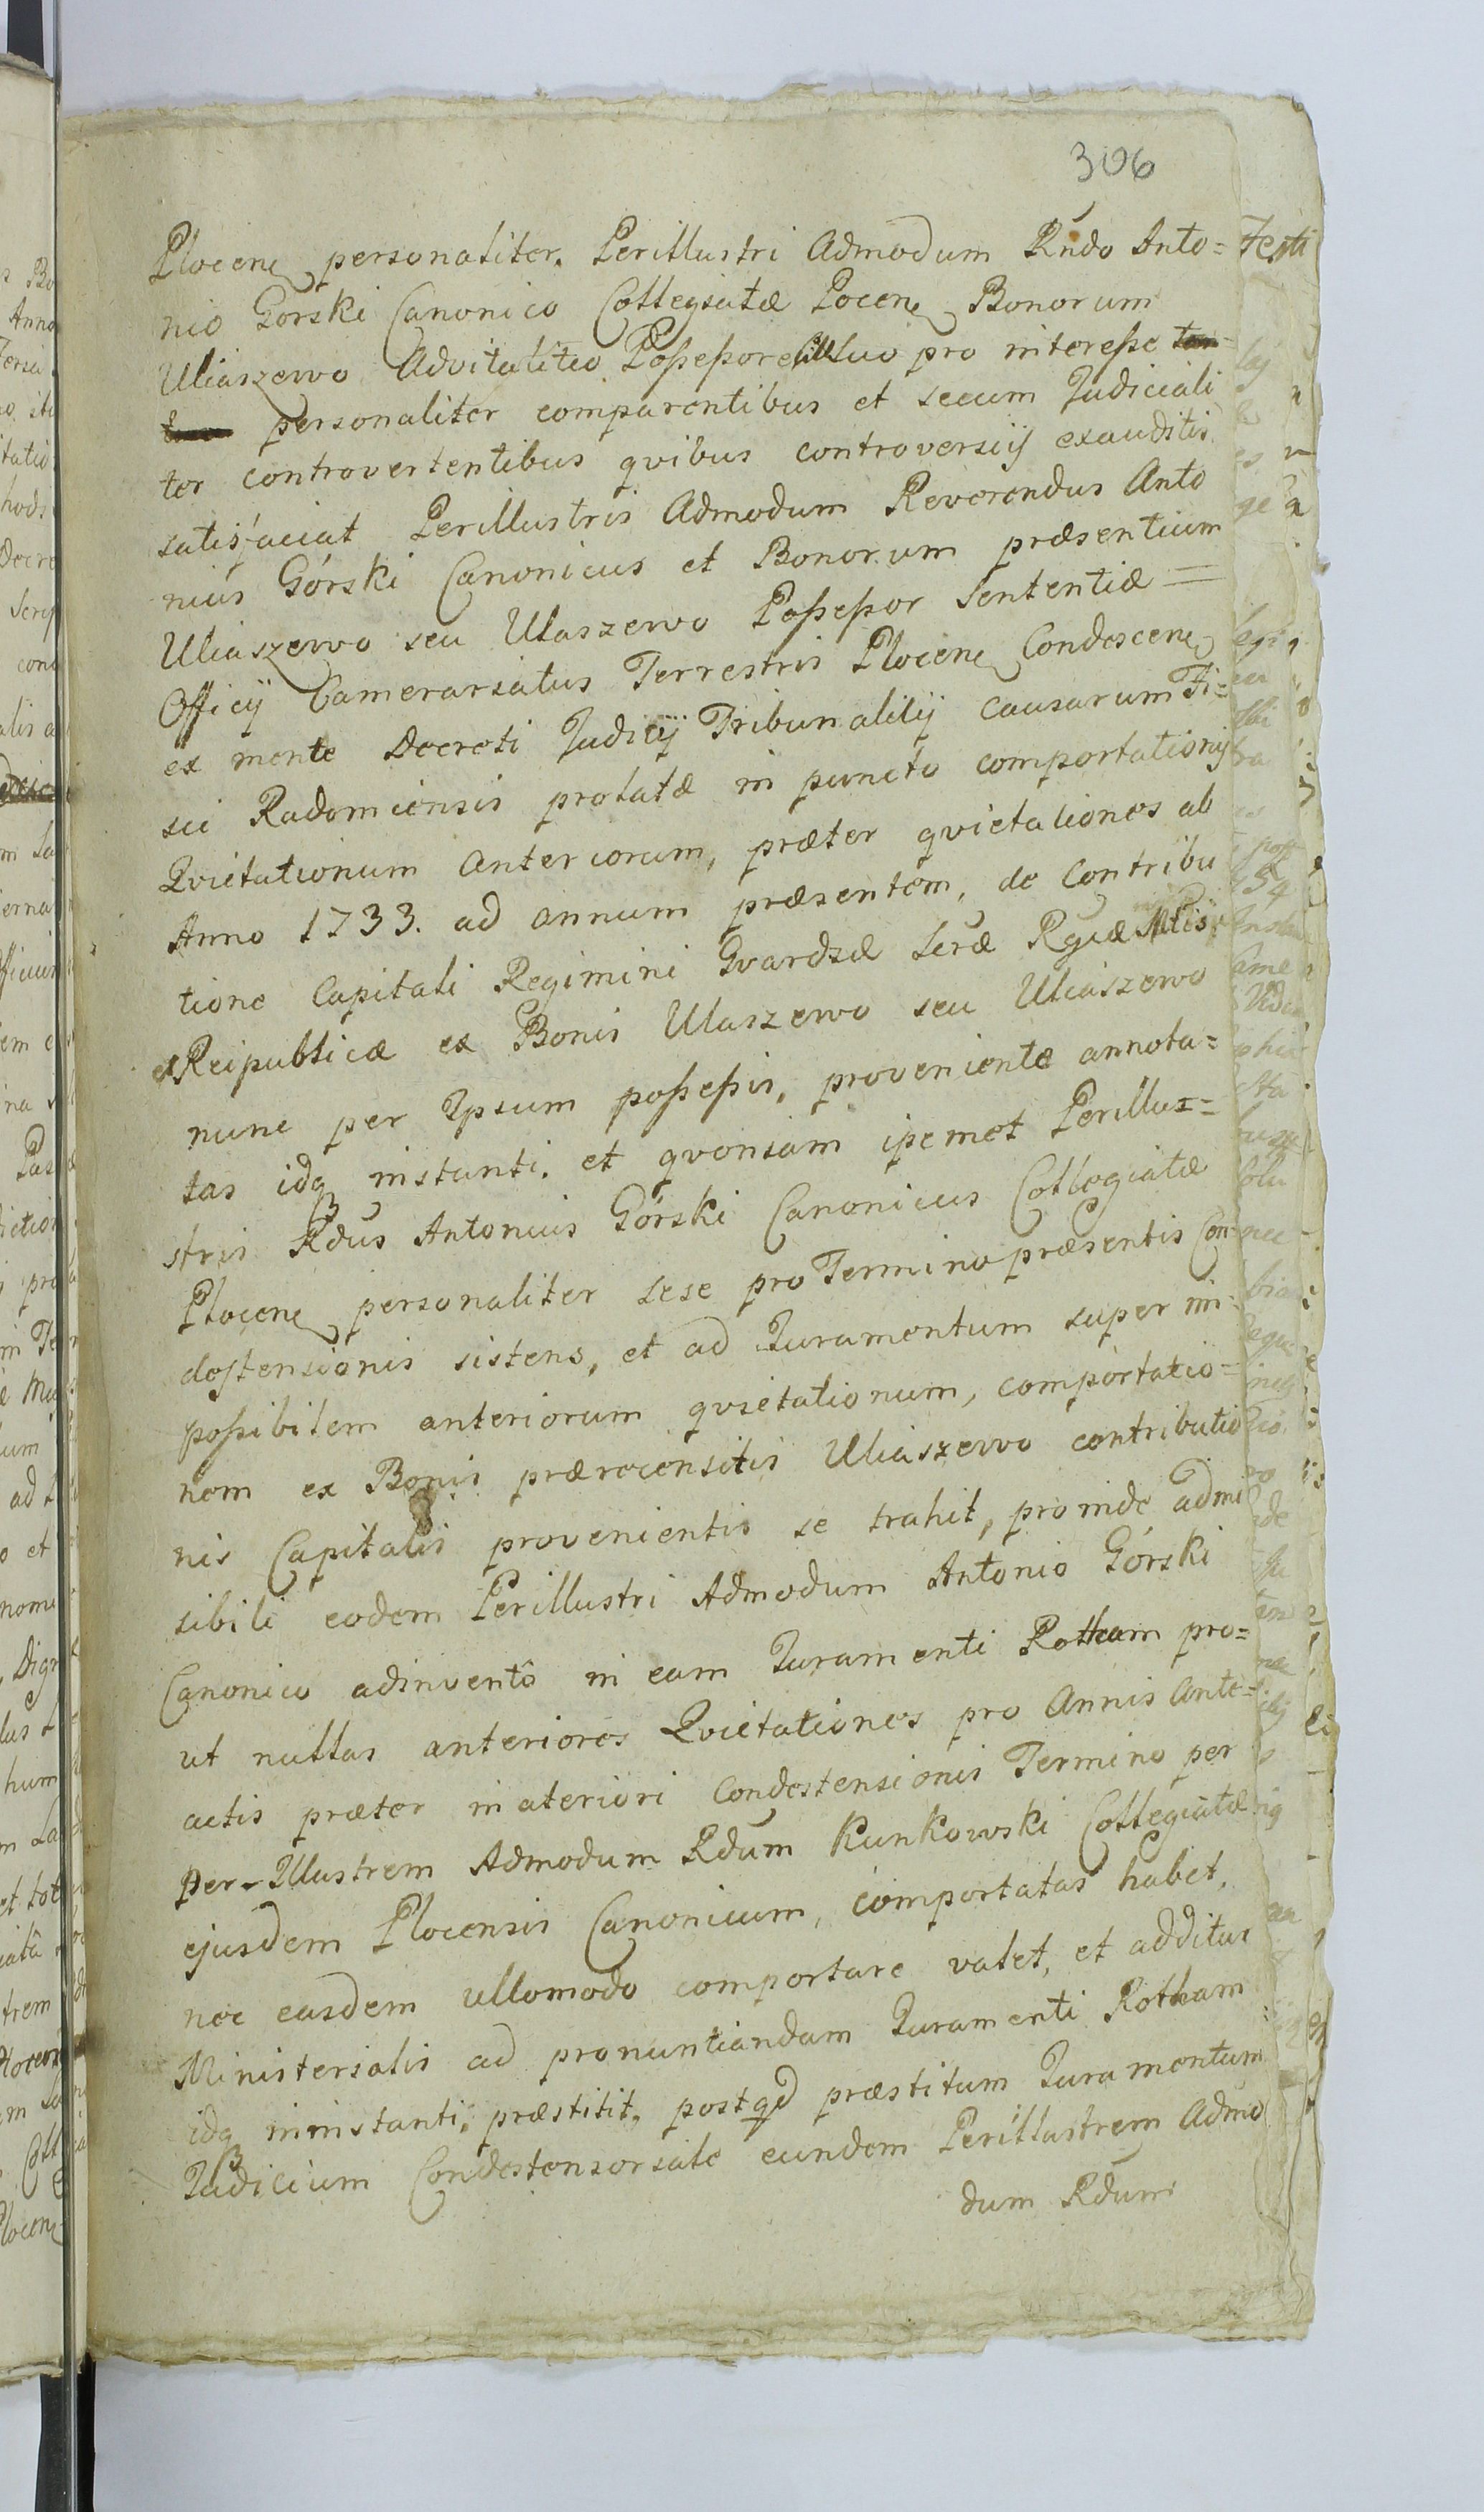 306
Plocens personaliter. Perillustri Admodum Rndo Anto=
nio Gorski Canonico Collegiatæ Plocens Bonorum
Uliaszewo Advitalitio Possessore pro interesse
personaliter comparentibus et secum Judiciali
ter controvertentibus qvibus controversiij exauditis
satisfaciat Perillustris Admodum Reverendus Anto
nius Górski Canonicus et Bonorum præsentium
Uliaszewo seu Ulaszewo Possessor Sententiæ =
Officij Camerariatus Terrestris Plocens Condescens
ex mente Decreti Judicij Tribunalitij Causarum Fi=
sci Radomiensis prolatæ in puncto comportationis
Qvietationum Anteriorum, præter qvietationes ab
Anno 1733. ad annum præsentem, de Contribu
tione Capitali Regimini Gvardiæ Seræ Rgiæ Mtis
et Reipublicæ ex Bonis Ulaszewo seu Uliaszewo
nunc per Ipsum possessis, proveniente annota=
tas idq instanti. et qvoniam ipsemet Perillu=
stris Rdus Antonius Górski Canonicus Collegiatæ
Plocens personaliter sese pro Termino præsentis Con
destensionis sistens, et ad Juramentum super im=
possibilem anteriorum qvietationum, comportatio=
nem ex Bonis prærecensitis Uliaszewo contributio
nis Capitalis provenientis se trahit, proinde admi
sibili eodem Perillustri Admodum Antonio Górski
Canonico adinvento in eam Juramenti Rotham pro=
ut nullas anteriores Qvietationes pro Annis Ante=
actis præter in ateriori Condestensionis Termino per
Per-Illustrem Admodum Rdum Kunkowski Collegiatæ
ejusdem Plocensis Canonicum, comportatas habet,
nec easdem ullomodo comportare valet, et additus
Ministerialis ad pronuntiandam Juramenti Rotham
idq ininstanti, præstitit, postqd præstitum Juramentum
Judicium Condestensoriale eundem Perillustrem Admo
dum Rdum